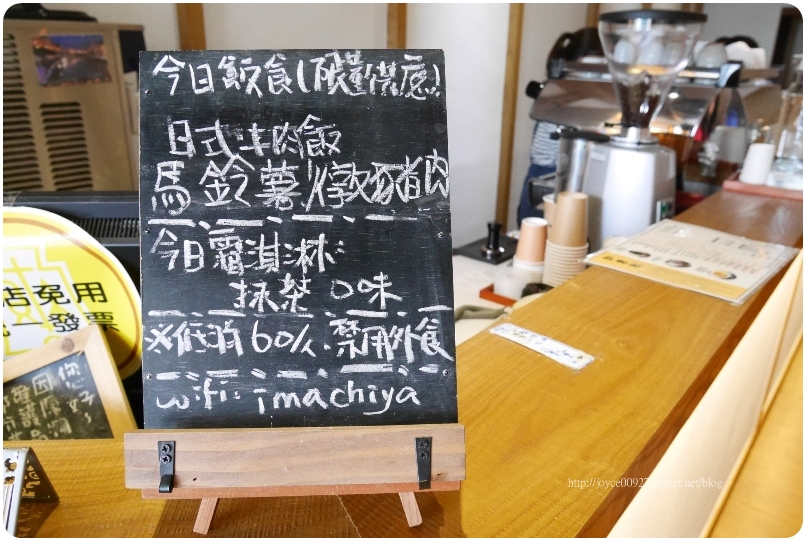 今日飯食(限量供應)
日式牛肉飯
馬鈴薯燉豬肉
今日霜淇淋
抹茶口味
※低消60/人.禁用外食
wifi: imachiya
店免用
統一發票
http://joyce0092
.net/blog